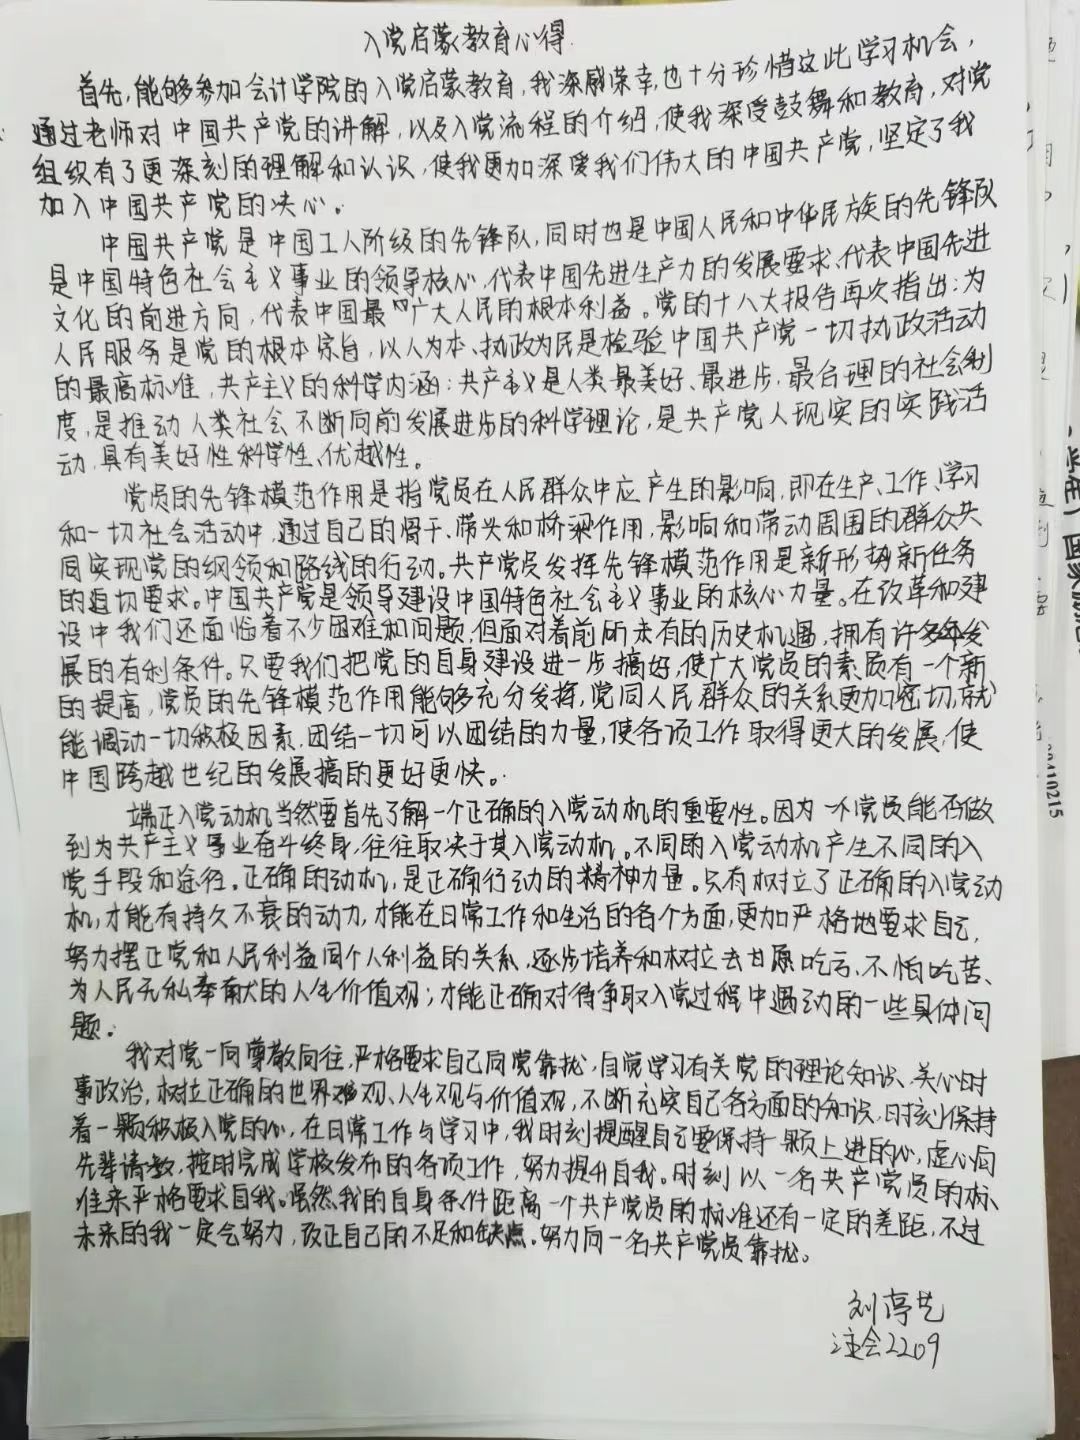 入党启蒙教育心得.
首先,能够参加会计学院的入党启蒙教育,我深感荣幸,也十分珍惜这此学习机会,
通过老师对中国共产党的讲解,以及入党流程的介绍,使我深受鼓舞和教育,对党
组织有了更深刻的理解和认识,使我更加深爱我们伟大的中国共产党,坚定了我
加入中国共产党的决心。
中国共产党是中国工人阶级的先锋队,同时也是中国人民和中华民族的先锋队
是中国特色社会主义事业的领导核心,代表中国先进生产力的发展要求、代表中国先进
文化的前进方向,代表中国最广大人民的根本利益。党的十八大报告再次指出:为
人民服务是党的根本宗旨,以人为本、执政为民是检验中国共产党一切执政活动
的最高标准,共产主义的科学内涵:共产主义是人类最美好、最进步、最合理的社会制
度,是推动人类社会不断向前发展进步的科学理论,是共产党人现实的实践活
动,具有美好性科学性、优越性。
党员的先锋模范作用是指党员在人民群众中应产生的影响,即在生产、工作、学习
和一切社会活动中,通过自己的骨干、带头和桥梁作用,影响和带动周围的群众共
同实现党的纲领和路线的行动。共产党员发挥先锋模范作用是新形势新任务
的迫切要求。中国共产党是领导建设中国特色社会主义事业的核心力量。在改革和建
设中我们还面临着不少困难和问题,但面对着前所未有的历史机遇,拥有许多发
展的有利条件。只要我们把党的自身建设进一步搞好,使广大党员的素质有一个新
的提高,党员的先锋模范作用能够充分发挥,党同人民群众的关系更加密切,就
能调动一切积极因素,团结一切可以团结的力量,使各项工作取得更大的发展,使
中国跨越世纪的发展搞的更好更快。
端正入党动机当然要首先了解一个正确的入党动机的重要性。因为一个党员能否做
到为共产主义事业奋斗终身,往往取决于其入党动机。不同的入党动机产生不同的入
党手段和途径。正确的动机,是正确行动的精神力量。只有树立了正确的入党动
机,才能有持久不衰的动力,才能在日常工作和生活的各个方面,更加严格地要求自己,
努力摆正党和人民利益同个人利益的关系,逐步培养和树立去甘愿吃亏、不怕吃苦、
为人民无私奉献的人生价值观;才能正确对待争取入党过程中遇动的一些具体问
题。
我对党一向尊敬向往,严格要求自己向党靠拢,自觉学习有关党的理论知识、关心时
事政治,树立正确的世界观、人生观与价值观,不断充实自己各方面的知识,时刻保持
着一颗积极入党的心,在日常工作与学习中,我时刻提醒自己要保持一颗上进的心,虚心向
先辈请教,按时完成学校发布的各项工作,努力提升自我。时刻以一名共产党员的标
准来严格要求自我。虽然我的自身条件距离一个共产党员的标准还有一定的差距,不过
未来的我一定会努力,改正自己的不足和缺点。努力向一名共产党员靠拢。
刘葶艺
注会2209
20410215